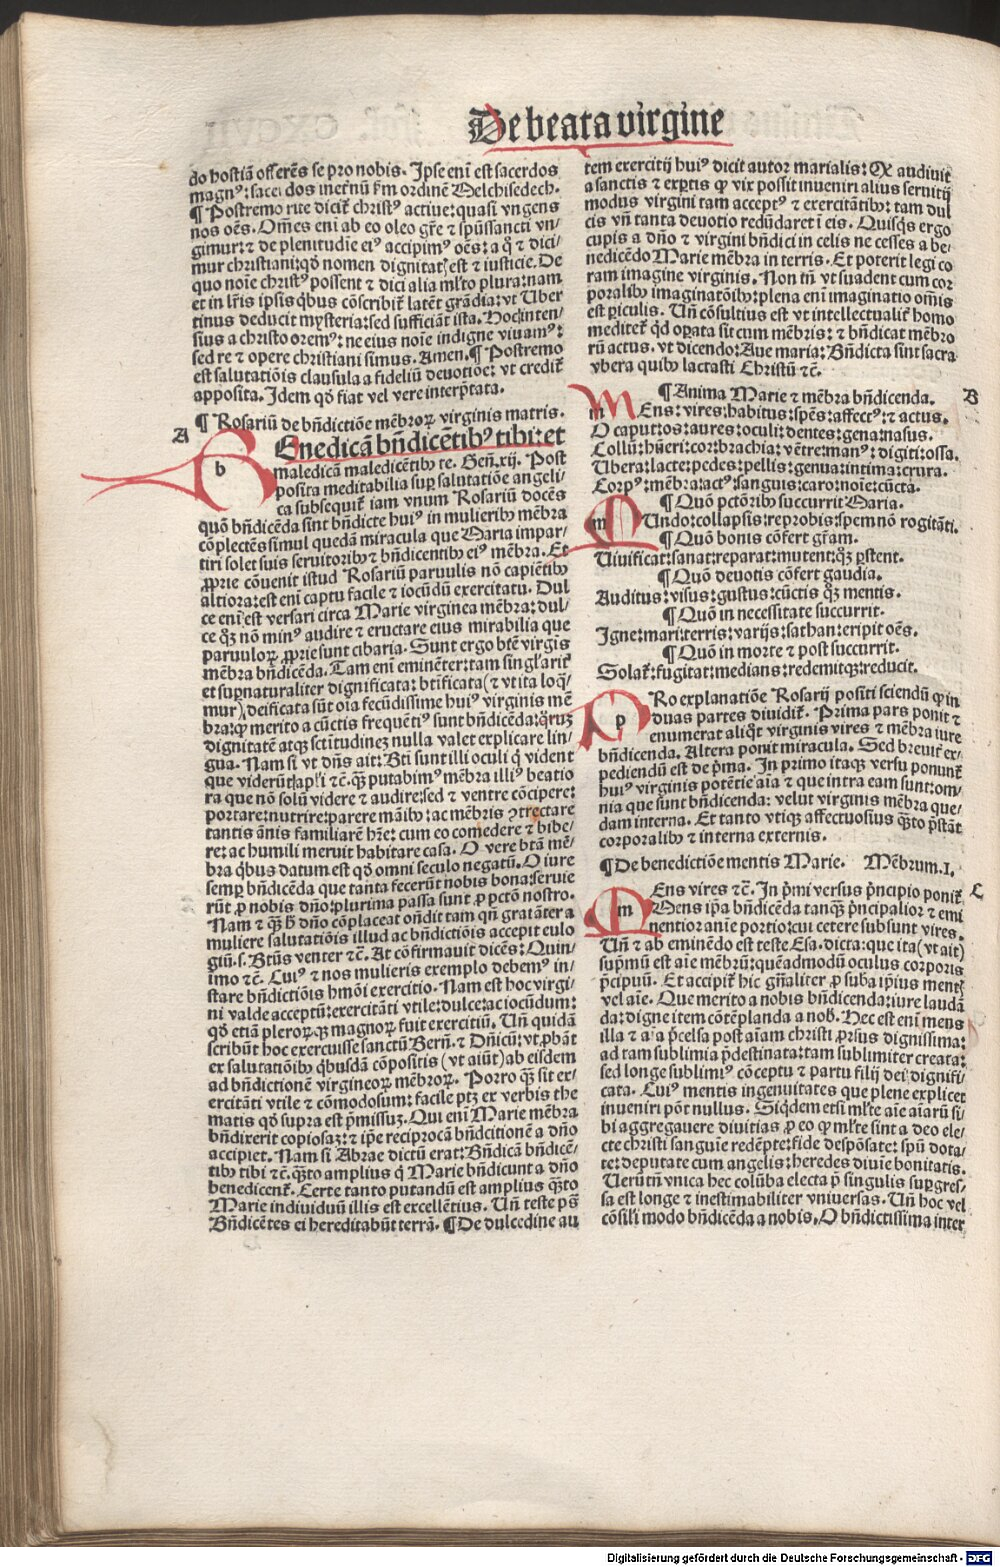 De beata virgine
do hostiã offerẽs se pro nobis. Ipse eni est sacerdos
magnꝰ: sacerdos inetrnũ ẜm ordinẽ Melchisedech.
¶ Postremo rite dicit᷑ christꝰ actiue: quasi vngens
nos oẽs. Om̃es eni ab eo oleo gr̃e ⁊ sp̃ussancti vn⸗
gimur: ⁊ de plenitudĩe eiꝰ accipimꝰ oẽs: a q̃ ⁊ dici⸗
mur christiani: qđ nomen dignitat est ⁊ iusticie. De
quo noĩe christꝰ possent ⁊ dici alia ml̃to plura: nam
et in lr̃is ipsis qͥbus cõscribit᷑ latẽt grãdia: vt Uber
tinus deducit mysteria: sed sufficiãt ista. Hoc inten⸗
sius a christo oremꝰ: ne eius noĩe indigne viuamꝰ:
sed re ⁊ opere christiani simus. Amen. ¶ Postremo
est salutatiõis clausula a fideliũ deuotiõe: vt credit᷑
apposita. Idem qđ fiat vel vere interp̃tata.
¶ Rosariũ de bñdictiõe mẽbroꝝ virginis matris.
A
b
Enedicã bñdicẽtibꝰ tibi: et
maledicã maledicẽtibꝫ te. Geñ. xij. Post
posita meditabilia suꝑ salutatiõe angeli⸗
ca subsequit᷑ iam vnum Rosariũ docẽs
quõ bñdicẽda sint bñdicte huiꝰ in mulieribꝫ mẽbra
cõplectẽs simul quedã miracula que Maria impar⸗
tiri solet suis seruitoribꝫ ⁊ bñdicentibꝫ eiꝰ mẽbra. Et
ꝓprie cõuenit istud Rosariũ paruulis nõ capiẽtibꝫ
altiora: est eni captu facile ⁊ iocũdũ exercitatu. Dul
ce eni est versari circa Marie virginea mẽbra: dul⸗
ce qꝫ nõ minꝰ audire ⁊ eructare eius mirabilia que
paruuloꝝ ꝓprie sunt cibaria. Sunt ergo btẽ virgis
mẽbra bñdicẽda. Tam eni eminẽter: tam singl̃arit᷑
et supnaturaliter dignificata: btificata (⁊ vt ita loqͥ⸗
mur) deificata sũt oĩa fecũdissime huiꝰ virginis mẽ
bra: ꝙ merito a cũctis frequẽtiꝰ sunt bñdicẽda: qͣruꝫ
dignitatẽ atqꝫ sctitudineꝫ nulla valet explicare lin⸗
gua. Nam si vt dñs ait: Bti sunt illi oculi q̇ vident
que viderũt apl̃i ⁊c. qͣꝫ putabimꝰ mẽbra illiꝰ beatio
ra que nõ solũ videre ⁊ audire: sed ⁊ ventre cõcipere:
portare: nutrire: parere mãibꝫ: ac mẽbris ꝯtrectare
tantis ãnis familiarẽ hr̃e: cum eo comedere ⁊ bibe⸗
re: ac humili meruit habitare casa. O vere btã mẽ⸗
bra qͥbus datum est qđ omni seculo negatũ. O iure
semꝑ bñdicẽda que tanta fecerũt nobis bona: seruie
rũt ꝓ nobis dño: plurima passa sunt ꝓ pctõ nostro.
Nam ⁊ qͣꝫ ħ dño cõplaceat oñdit tam qñ gratãter a
muliere salutatiõis illud ac bñdictiõis accepit eulo
giũ. s. Btũs venter ⁊c. At cõfirmauit dicẽs: Quin⸗
ĩmo ⁊c. Cuiꝰ ⁊ nos mulieris exemplo debemꝰ in⸗
stare bñdictiõis hmõi exercitio. Nam est hoc virgi⸗
ni valde acceptũ: exercitãti vtile: dulce: ac iocũdum:
qđ etiã pleroꝝqꝫ magnoꝝ fuit exercitiũ. Uñ quidã
scribũt hoc exercuisse sanctũ Berñ. ⁊ Dñicũ: vt ꝓbãt
ex salutatiõibꝫ qͥbusdã cõpositis (vt aiũt) ab eisdem
ad bñdictionẽ virgineoꝝ mẽbroꝝ. Porro qͣꝫ sit ex⸗
ercitãti vtile ⁊ cõmodosum: facile ptꝫ ex verbis the
matis qđ supra est p̃missuꝫ. Qui eni Marie mẽbra
bñdixerit copiosaꝫ: ⁊ ip̃e reciprocã bñdcitionẽ a dño
accipiet. Nam si Abrae dictũ erat: Bñdicã bñdicẽ⸗
tibꝫ tibi ⁊c. qͣsto amplius q̇ Marie bñdicunt a dño
benedicent᷑. Certe tanto putandũ est amplius qͣsto
Marie indiuiduũ illis est excellẽtius. Uñ teste ps̃
Bñdicẽtes ei hereditabũt terrã. ¶ De dulcedine au
tem exercitij huiꝰ dicit autor marialis: Qꝫ audiuit
a sanctis ⁊ exꝑtis ꝙ vix possit inueniri alius seruitij
modus virgini tam acceptꝰ ⁊ exercitãtibꝫ: tam dul
cis vñ tanta deuotio redũdaret ĩ eis. Quisqͥs ergo
cupis a dño ⁊ virgini bñdici in celis ne cesses a be⸗
nedicẽdo Marie mẽbra in terris. Et poterit legi co
ram imagine virginis. Non tñ vt suadent cum cor
poralibꝫ imaginatõibꝫ: plena eni imaginatio om̃is
est ꝑiculis. Uñ cõsultius est vt intellectualit᷑ homo
meditet᷑ qđ oꝑata sit cum mẽbris: ⁊ bñdicat mẽbro
rũ actus. vt dicendo: Aue maria: Bñdicta sint sacra
vbera quibꝫ lactasti Christũ ⁊c.
¶ Anima Marie ⁊ mẽbra bñdicenda.
B
m
Ens: vires: habitus: spẽs: affectꝰ: ⁊ actus.
O caput: os: aures: oculi: dentes: gena: nasus.
Collũ: hũeri: cor: brachia: vẽtre: manꝰ: digiti: ossa.
Ubera: lacte: pedes: pellis: genua: intima: crura.
Corpꝰ: mẽbra: actꝰ: sanguis: caro: noĩe: cũcta.
¶ Quõ pctõribꝫ succurrit Maria.
m
Undo: collapsis: reprobis: spem nõ rogitãti.
¶ Quõ bonis cõfert gr̃am.
Uiuificat: sanat: reparat: mutent: qꝫ ꝑstent.
¶ Quõ deuotis cõfert gaudia.
Auditus: visus: gustus: cũctis qꝫ mentis.
¶ Quõ in necessitate succurrit.
Igne: mari: terris: varijs: sathan: eripit oẽs.
¶ Quõ in morte ⁊ post succurrit.
Solat᷑: fugitat: medians: redemitqꝫ: reducit.
p
Ro explanatiõe Rosarij positi sciendũ ꝙ in
duas partes diuidit᷑. Prima pars ponit ⁊
enumerat aliqͦt virginis vires ⁊ mẽbra iure
bñdicenda. Altera ponit miracula. Sed breuit᷑ ex⸗
pediendũ est de p̃ma. In primo itaqꝫ versu ponunt᷑
huiꝰ virginis potẽtie aĩa ⁊ que intra eam sunt: om⸗
nia que sunt bñdicenda: velut virginis mẽbra que⸗
dam interna. Et tanto vtiqꝫ affectuosius qͣsto p̃stãt
corporalibꝫ ⁊ interna externis.
¶ De benedictiõe mentis Marie. Mẽbrum. I.
C
m
Ens vires ⁊c. In p̃mi versus p̃ncipio ponit᷑
Mens ip̃a bñdicẽda tanqͣꝫ p̃ncipalior ⁊ emi
nentior anĩe portio: cui cetere subsunt vires.
Uñ ⁊ ab eminẽdo est teste Esa. dicta: que ita (vt ait)
sup̃mũ est aĩe mẽbrũ: quẽadmodũ oculus corporis
p̃cipuũ. Et accipit᷑ hic gñaliter ꝓ suba ip̃ius mentꝭ
vel aĩe. Que merito a nobis bñdicenda: iure laudã
da: digne item cõtẽplanda a nob. Hec est eni mens
illa ⁊ aĩa p̃celsa post aĩam christi ꝓrsus dignissima:
ad tam sublimia p̃destinata: tam sublimiter creata:
sed longe sublimiꝰ cõceptu ⁊ partu filij dei dignifi⸗
cata. Cuiꝰ mentis ingenuitates que plene explicet
inueniri põt nullus. Siqͥdem etsi ml̃te aĩe aĩarũ si⸗
bi aggregauere diuitias ꝓ eo ꝙ ml̃te sint a deo ele⸗
cte christi sanguĩe redẽpte: fide despõsate: spũ dota⸗
te: deputate cum angelis: heredes diuĩe bonitatis.
Uerũtñ vnica hec colũba electa p̃ singulis suꝑgres⸗
sa est longe ⁊ inestimabiliter vniuersas. Uñ hoc vel
cõsili modo bñdicẽda a nobis. O bñdictissima inter
Digitalisierung gefördert durch die Deutsche Forschungsgemeinschaft - DFG